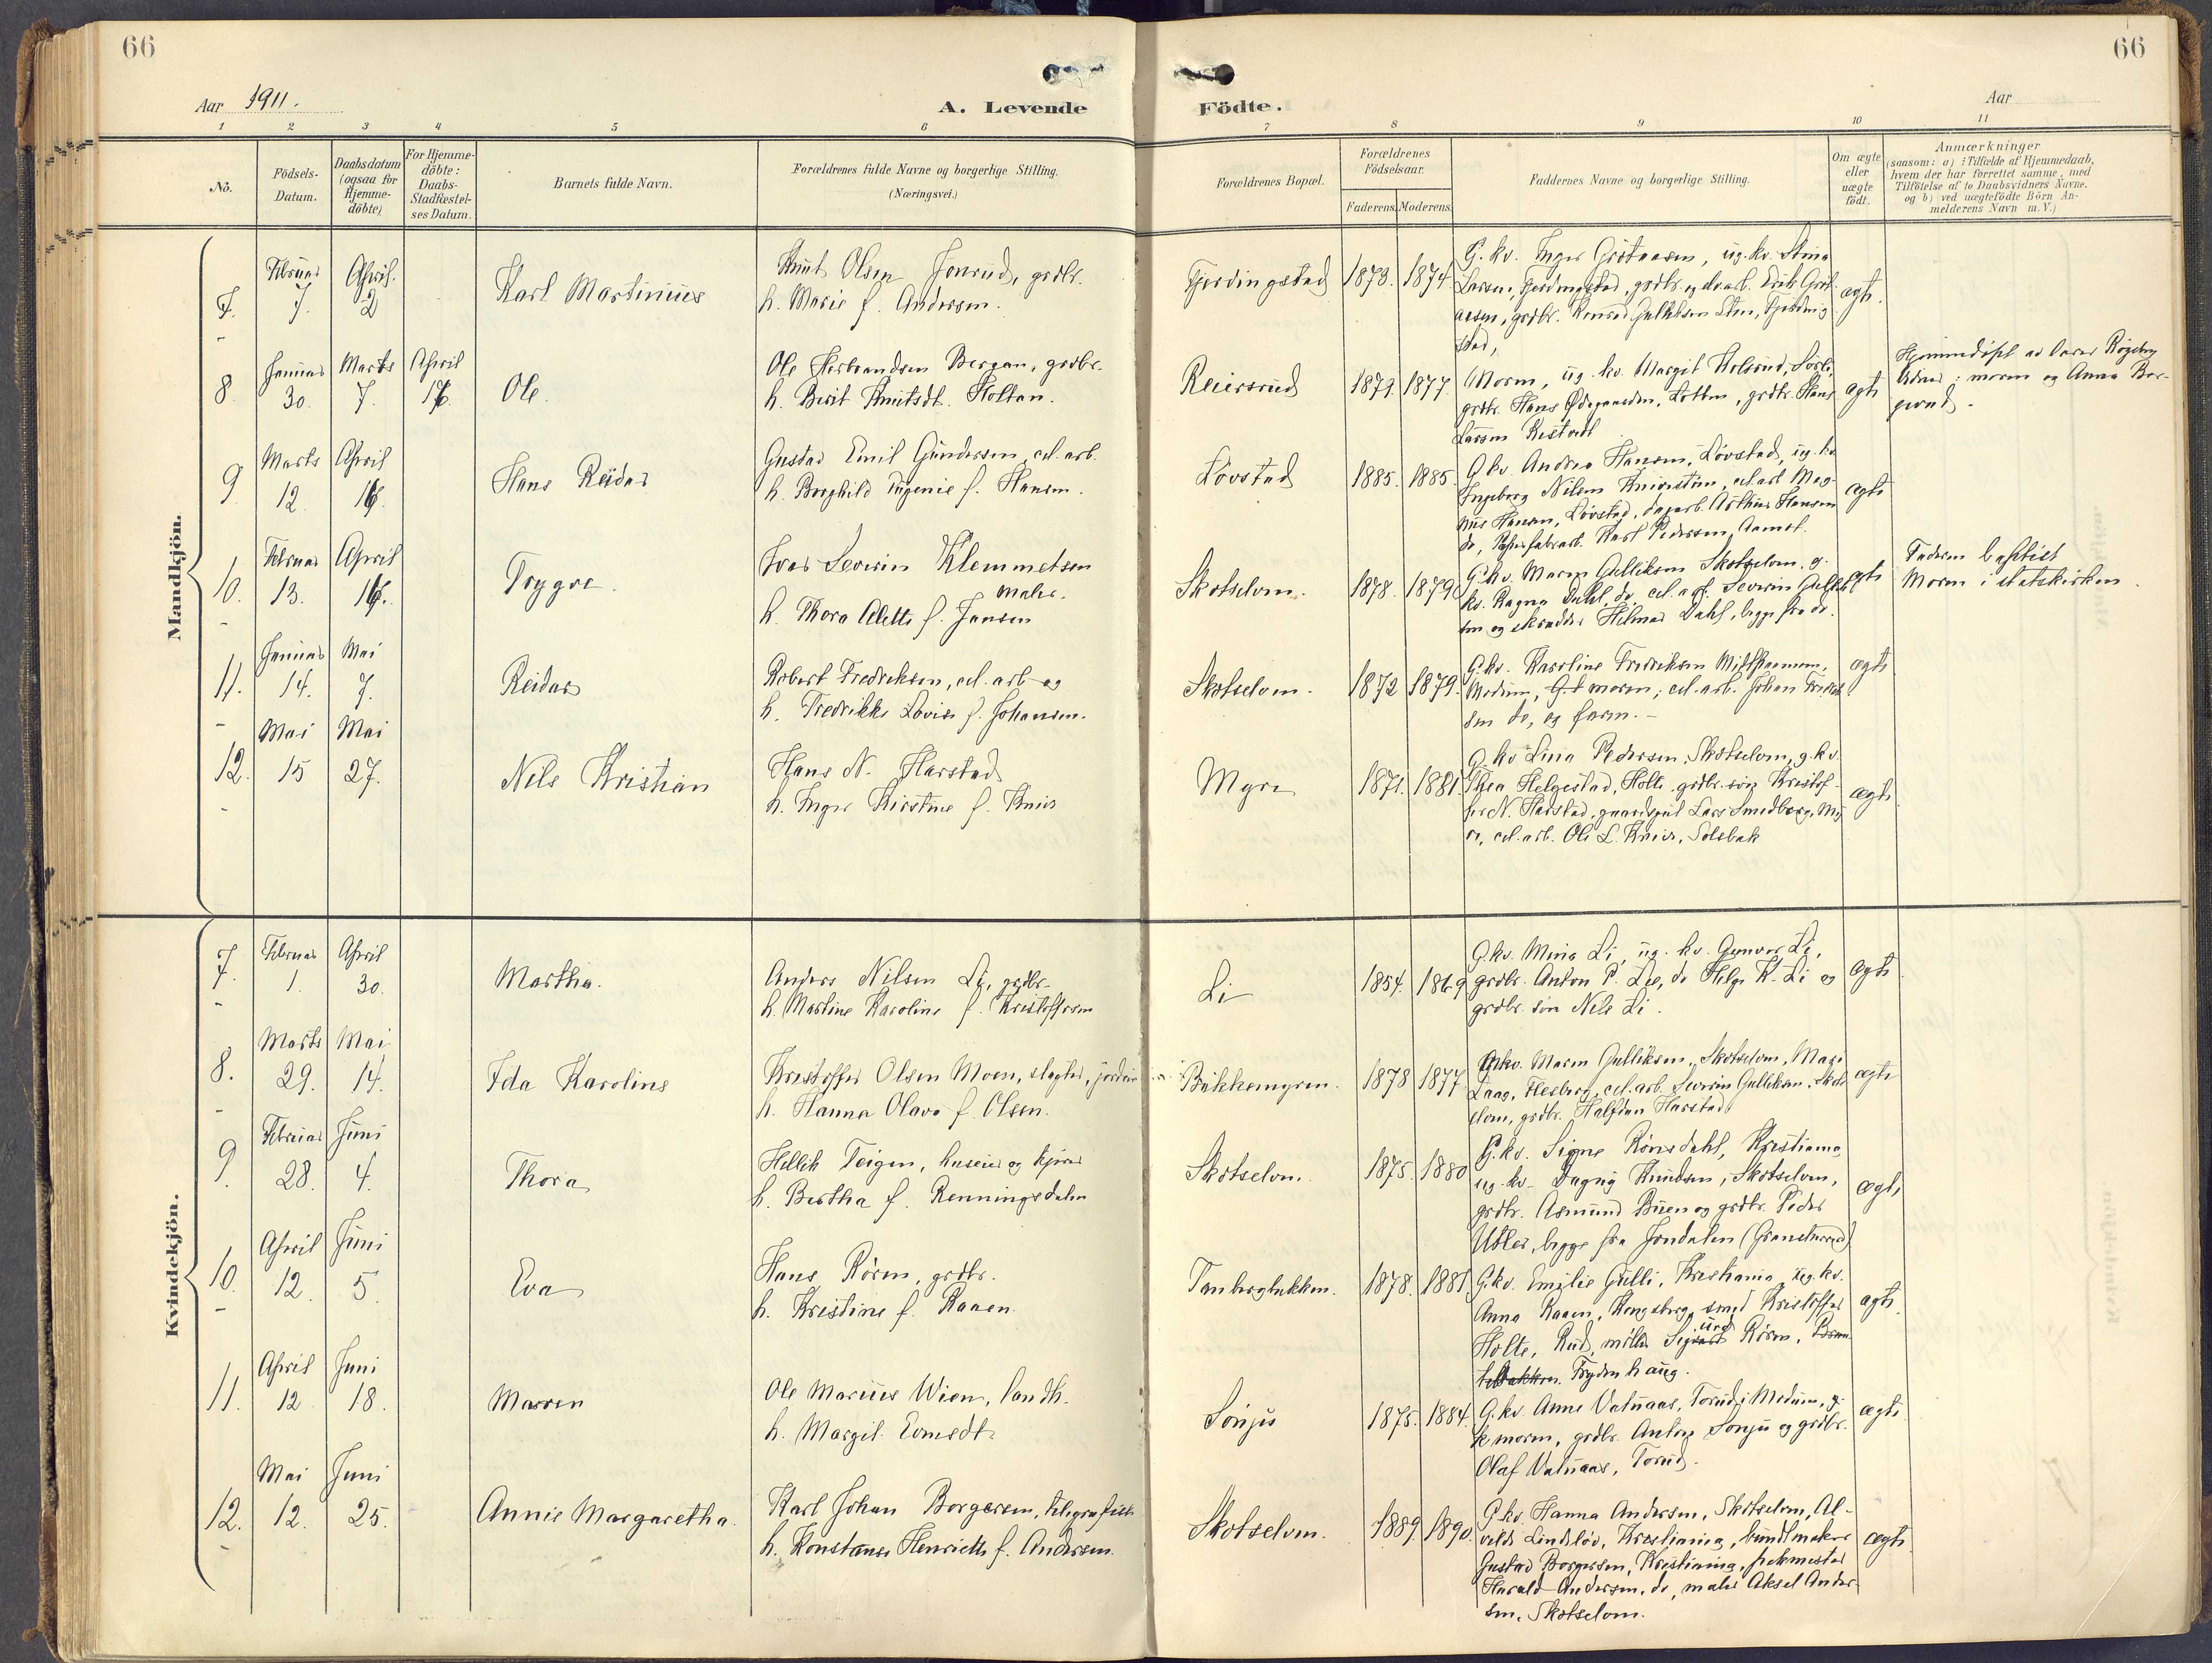 66
66
Aar 1911.
A. Levende
Födte.
Aar
1 2 3 4 5 6 7 8 9 10 11
No.
Födsels-
Datum.
Daabsdatum
(ogsaa for
Hjemme-
döbte)
For Hjemme-
döbte:
Daabs-
Stadfæstel-
ses Datum.
Barnets fulde Navn.
Forældrenes fulde Navne og borgerlige Stilling.
(Næringsvei.)
Forældrenes Bopæl.
Forældrenes
Födselsaar.
Faderens. Moderens.
Faddernes Navne og borgerlige Stilling.
Om ægte
eller
uægte
födt.
Anmærkninger
(saasom: a) i Tilfælde af Hjemmedaab,
hvem der har forrettet samme, med
Tilföielse af to Daabsvidners Navne.
og b) ved uægtefödte Börn An-
melderens Navn m.V.)
Mandkjön.
7.
Februar
7.
April.
2
Karl Martinius
Knut Olsen Jonrud, grdbr.
h. Marie f. Andersen.
Fjerdingstad
1873. 1874.
G. kv. Inger Gustavsen, ug. kv. Stina
Larsen, Fjerdingstad, grdbr. og
stad,
ægte.
8
Januar
30.
Marts
7.
April
17.
Ole
Ole Herbrandsen Bergan, grdbr.
h. Berit Knutsdt. Holtan.
Reiersrud
1879. 1877.
Moren, ug. kv. Margit
grdbr. Hans Ødegaarden, Lobben, grdbr. Hans
Larsen
ægte
Hjemmedöpt av
moren og Anna Bor-
gerud.
9
Marts
12
April
16.
Hans Reidar
Gustav Emil Gundersen, cel. arb.
h. Borghild Eugenie f. Hansen.
Løvstad
1885. 1885.
G. kv. Andrea Hansen, Løvstad, ug. kv
Ingeborg Nilsen Kniveston, cel. arb Mag-
nus Hansen, Løvstad, dagarb. Arthur Hansen
do, Papirfabrarb. Karl Pedersen, Aamot.
ægte
10.
Februar
13.
April
16.
Trygve.
Ivar Severin Klemmetsen
maler.
h. Thora Alette f. Jansen
Skotselven.
1878. 1879
G. kv. Maren Gulliksen Skotselven, g.
kv. Ragna Dahl, do, cel. arb. Severin Gullik
sen og skrædder Hilmar Dahl, begge fra do.
ægte
Faderen baptist
Moren i statskirken.
11.
Januar
14.
Mai
7.
Reidar
Robert Fredriksen, cel. arb og
h. Fredrikke Lovise f. Johansen.
Skotselven.
1872 1879.
G. kv. Karoline Fredriksen
Modum, moren; cel. arb. Johan Fredrik
sen do, og faren.
ægte
12.
Mai
15
Mai
27.
Nils Kristian
Hans N. Harstad
h. Inger Kirstine f. Kniv
Myra
1871. 1881.
G. kv Lina Pedersen, Skotselven, g. kv.
Thea Helgestad, Holte, grdbr. søn Kristof-
fer N. Harstad, gaardsgut Lars Smedberg, My
ra, cel. arb. Ole L. Kniv, Solbak
ægte
Kvindekjön.
7.
Februar
1.
April
30.
Martha.
Anders Nilsen Li, grdbr.
h. Martine Karoline f. Kristoffersen
Li
1854. 1869
G. kv. Mina Li, ug. kv. Gunvor Li,
grdbr. Anton P. Lie, do Helge K. Li og
grdbr. søn Nils Li.
ægte
8.
Marts
29.
Mai
14.
Ida Karoline
Kristoffer Olsen Moen, slagter,
h. Hanna Olava f. Olsen.
Bikkemyren.
1878 1877
G. kv. Maren Gulliksen, Skotselven, Mari
Laag, Flesberg, cel. arb. Severin Gulliksen, Skots
elven, grdbr. Halfdan Harstad.
ægte
9
Februar
28.
Juni
4.
Thora
Hellik Teigen, huseier og kjører
h. Bertha f. Renningsdalen
Skotselven.
1875. 1880
G. kv. Signe Rönsdahl, Kristiania,
ug. kv. Dagny Knudsen, Skotselven,
grdbr. Asmund Büen og grdbr. Peder
begge fra Jondalen
ægte
10
April
12.
Juni
5
Eva
Hans Røren, grdbr.
h. Kristine f. Raaen.
Tanbergløkken.
1878. 1881.
G. kv. Emilie Gulli, Kristiania, ug. kv.
Anna Raaen, Kongsberg, smed Kristoffer
Holte, Rud, møller Sigurd Røren,
Frydenhaug.
ægte.
11.
April
12
Juni
18.
Marren
Ole Marius Wien, landh.
h. Margit Evensdt.
Sønju
1875. 1884.
G. kv. Anne Vatnaas, Torud i Modum, g.
k moren, grdbr. Anton Sønju og grdbr.
Olaf Vatnaas, Torud.
ægte
12.
Mai
12.
Juni
25.
Annie Margaretha.
Karl Johan Borgersen, telegrafist
h. Konstanse Henriette f. Andersen.
Skotselven.
1889. 1890.
G. kv. Hanna Andersen, Skotselven, Al-
vilde Lindsløv, Kristiania, buntmaker
Gustav Borgersen, Kristiania,
Harald Andersen, do, maler Aksel Ander-
sen, Skotselven.
ægte